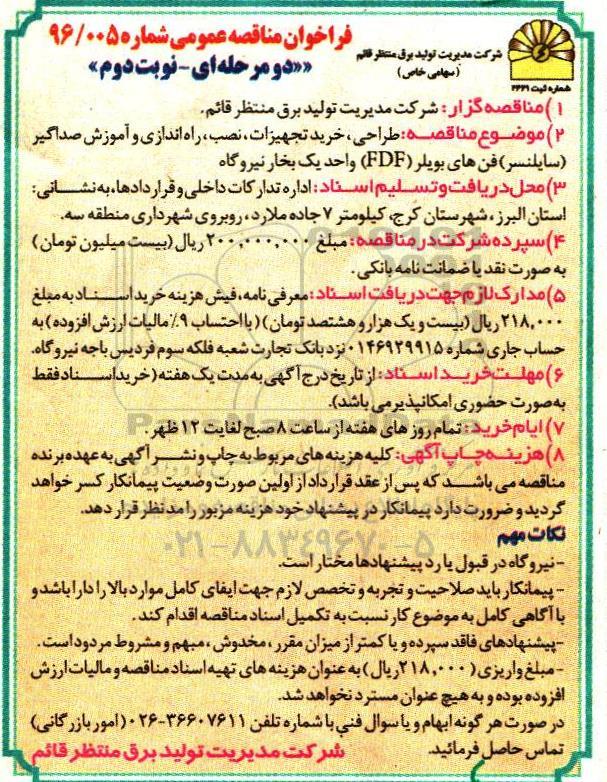 فراخوان مناقصه عمومی شماره ۹۶/۰۰۵
««دو مرحله‌ای - نوبت دوم»
شرکت مدیریت تولید برق منتظر قائم
(سهامی خاص)
شماره ثبت ۲۲۲۱
۱) مناقصه گزار: شرکت مدیریت تولید برق منتظر قائم.
۲) موضوع مناقصه: طراحی، خرید تجهیزات، نصب، راه اندازی و آموزش صداگیر
(سایلنسر) فن های بویلر (FDF) واحد یک بخار نیروگاه
۳) محل دریافت و تسلیم اسناد: اداره تدارکات داخلی و قراردادها، به نشانی:
استان البرز، شهرستان کرج، کیلومتر ۷ جاده ملارد، روبروی شهرداری منطقه سه.
۴) سپرده شرکت در مناقصه: مبلغ ۲۰۰,۰۰۰,۰۰۰ ریال (بیست میلیون تومان)
به صورت نقد یا ضمانت نامه بانکی.
۵) مدارک لازم جهت دریافت اسناد: معرفی نامه، فیش هزینه خرید اسناد به مبلغ
۲۱۸,۰۰۰ ریال (بیست و یک هزار و هشتصد تومان) (با احتساب ۹٪ مالیات ارزش افزوده) به
حساب جاری شماره ۰۱۴۶۹۲۹۹۱۵ نزد بانک تجارت شعبه فلکه سوم فردیس باجه نیروگاه.
۶) مهلت خرید اسناد: از تاریخ درج آگهی به مدت یک هفته (خرید اسناد فقط
به صورت حضوری امکانپذیر می باشد).
۷) ایام خرید: تمام روز های هفته از ساعت ۸ صبح لغایت ۱۲ ظهر.
۸) هزینه چاپ آگهی: کلیه هزینه های مربوط به چاپ و نشر آگهی به عهده برنده
مناقصه می باشد که پس از عقد قرارداد از اولین صورت وضعیت پیمانکار کسر خواهد
گردید و ضرورت دارد پیمانکار در پیشنهاد خود هزینه مزبور را مد نظر قرار دهد.
نکات مهم
- نیروگاه در قبول یا رد پیشنهادها مختار است.
- پیمانکار باید صلاحیت و تجربه و تخصص لازم جهت ایفای کامل موارد بالا را دارا باشد و
با آگاهی کامل به موضوع کار نسبت به تکمیل اسناد مناقصه اقدام کند.
- پیشنهادهای فاقد سپرده و یا کمتر از میزان مقرر، مخدوش، مبهم و مشروط مردود است.
- مبلغ واریزی (۲۱۸,۰۰۰ ریال) به عنوان هزینه های تهیه اسناد مناقصه و مالیات ارزش
افزوده بوده و به هیچ عنوان مسترد نخواهد شد.
در صورت هر گونه ابهام و یا سوال فنی با شماره تلفن ۳۶۶۰۷۶۱۱-۰۲۶ (امور بازرگانی)
تماس حاصل فرمائید.
شرکت مدیریت تولید برق منتظر قائم
۰۲۱-۸۸۳۴۹۶۷۰-۵